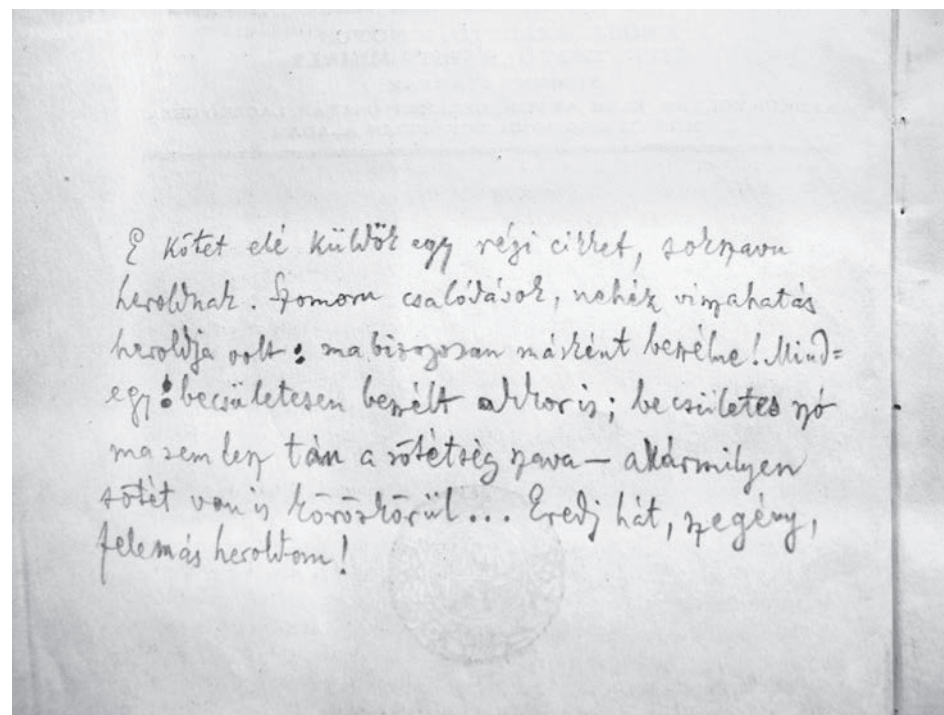 E kötet elé küldök egy régi cikket, sokszavu
heroldnak. Szomoru csalódások, nehéz visszahatás
heroldja volt: ma bizonyosan másként beszélne! Mind=
egy: becsületesen beszélt akkor is; becsületes szó
ma sem lesz tán a sötétség szava — akármilyen
sötét van is köröskörül... Eredj hát, szegény,
felemás heroldom!